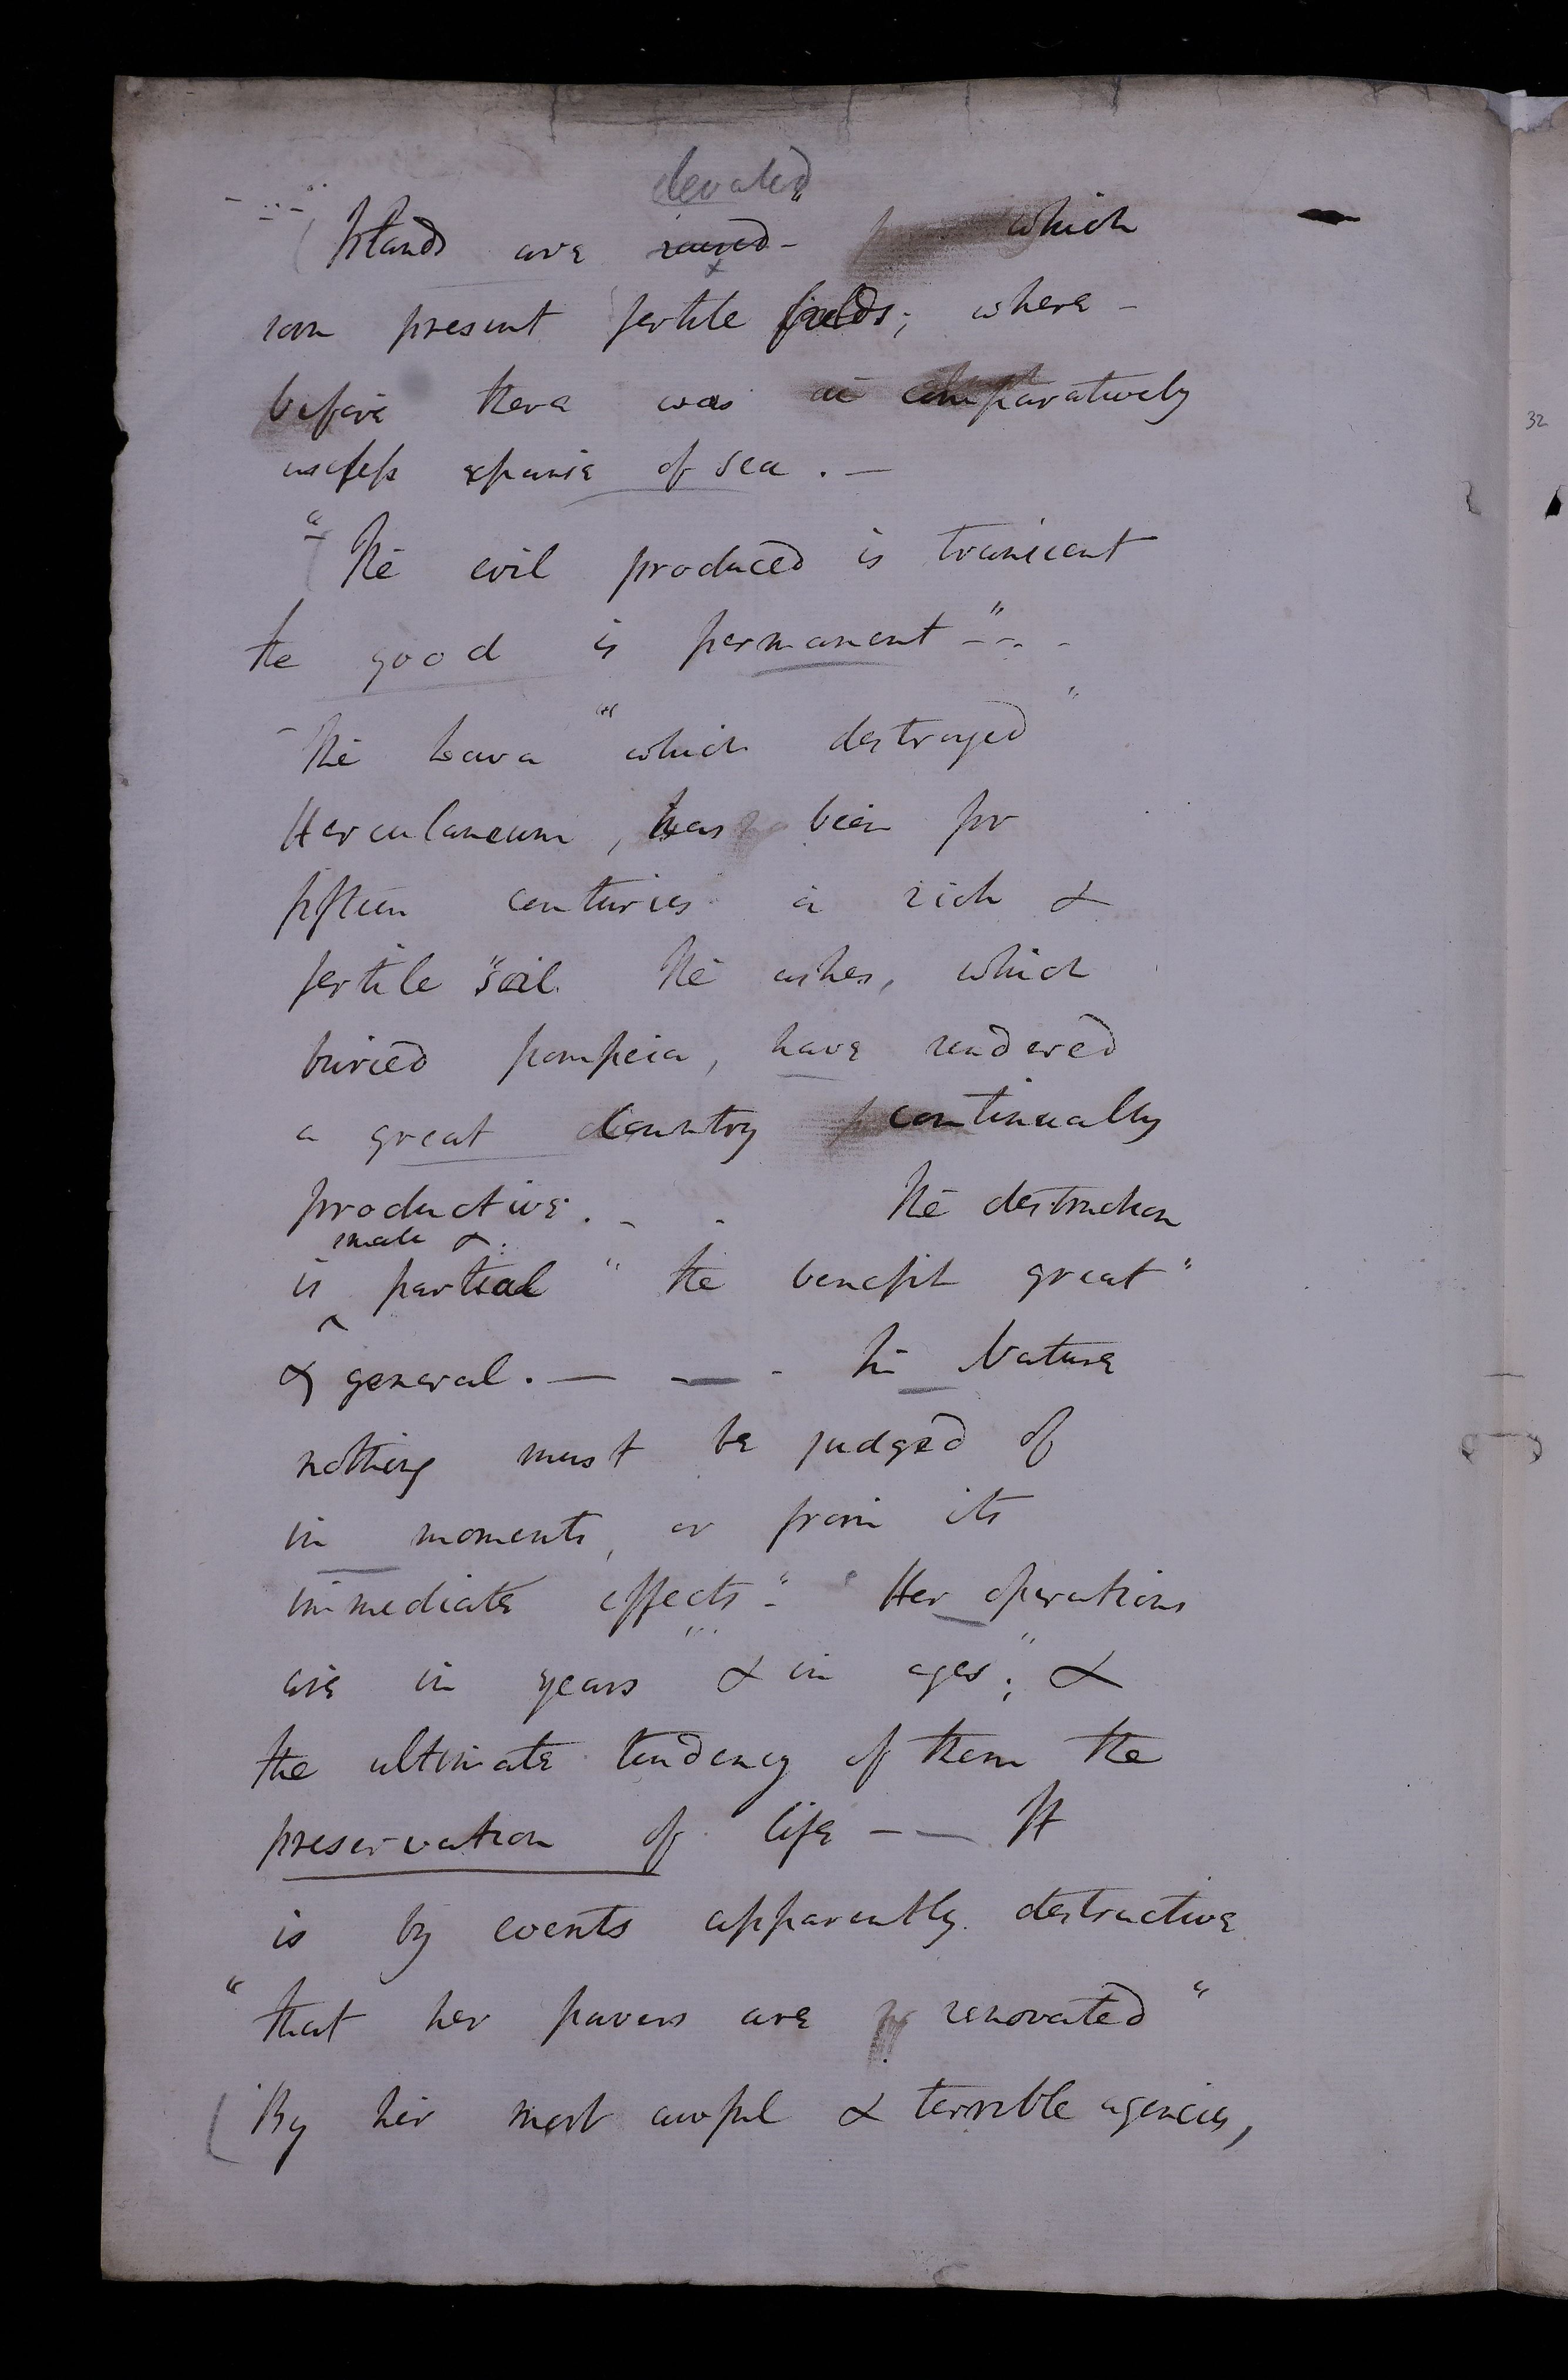 elevated
Islands are raised - which
soon present fertile fields; where -
before there was a comparatively
useless expanse of sea. —
"The evil produced is transient
the good is permanent -" - -
- The Lava "which destroyed"
Herculaneum, has been for
fifteen centuries a rich &
fertile "soil. The ashes, which
buried pompeia, have rendered
a great Country continually
productive. - - The destruction
small &
is partial " the benefit great"
& general. — - — - In Nature
nothing must be judged of
in moments, or from its
immediate effects"- Her operations
are in years "& in ages"; &
the ultimate tendency of them the
preservation of life — — It
is by events apparently destructive
"that her powers are renovated"
(By her most awful & terrible agencies,
32